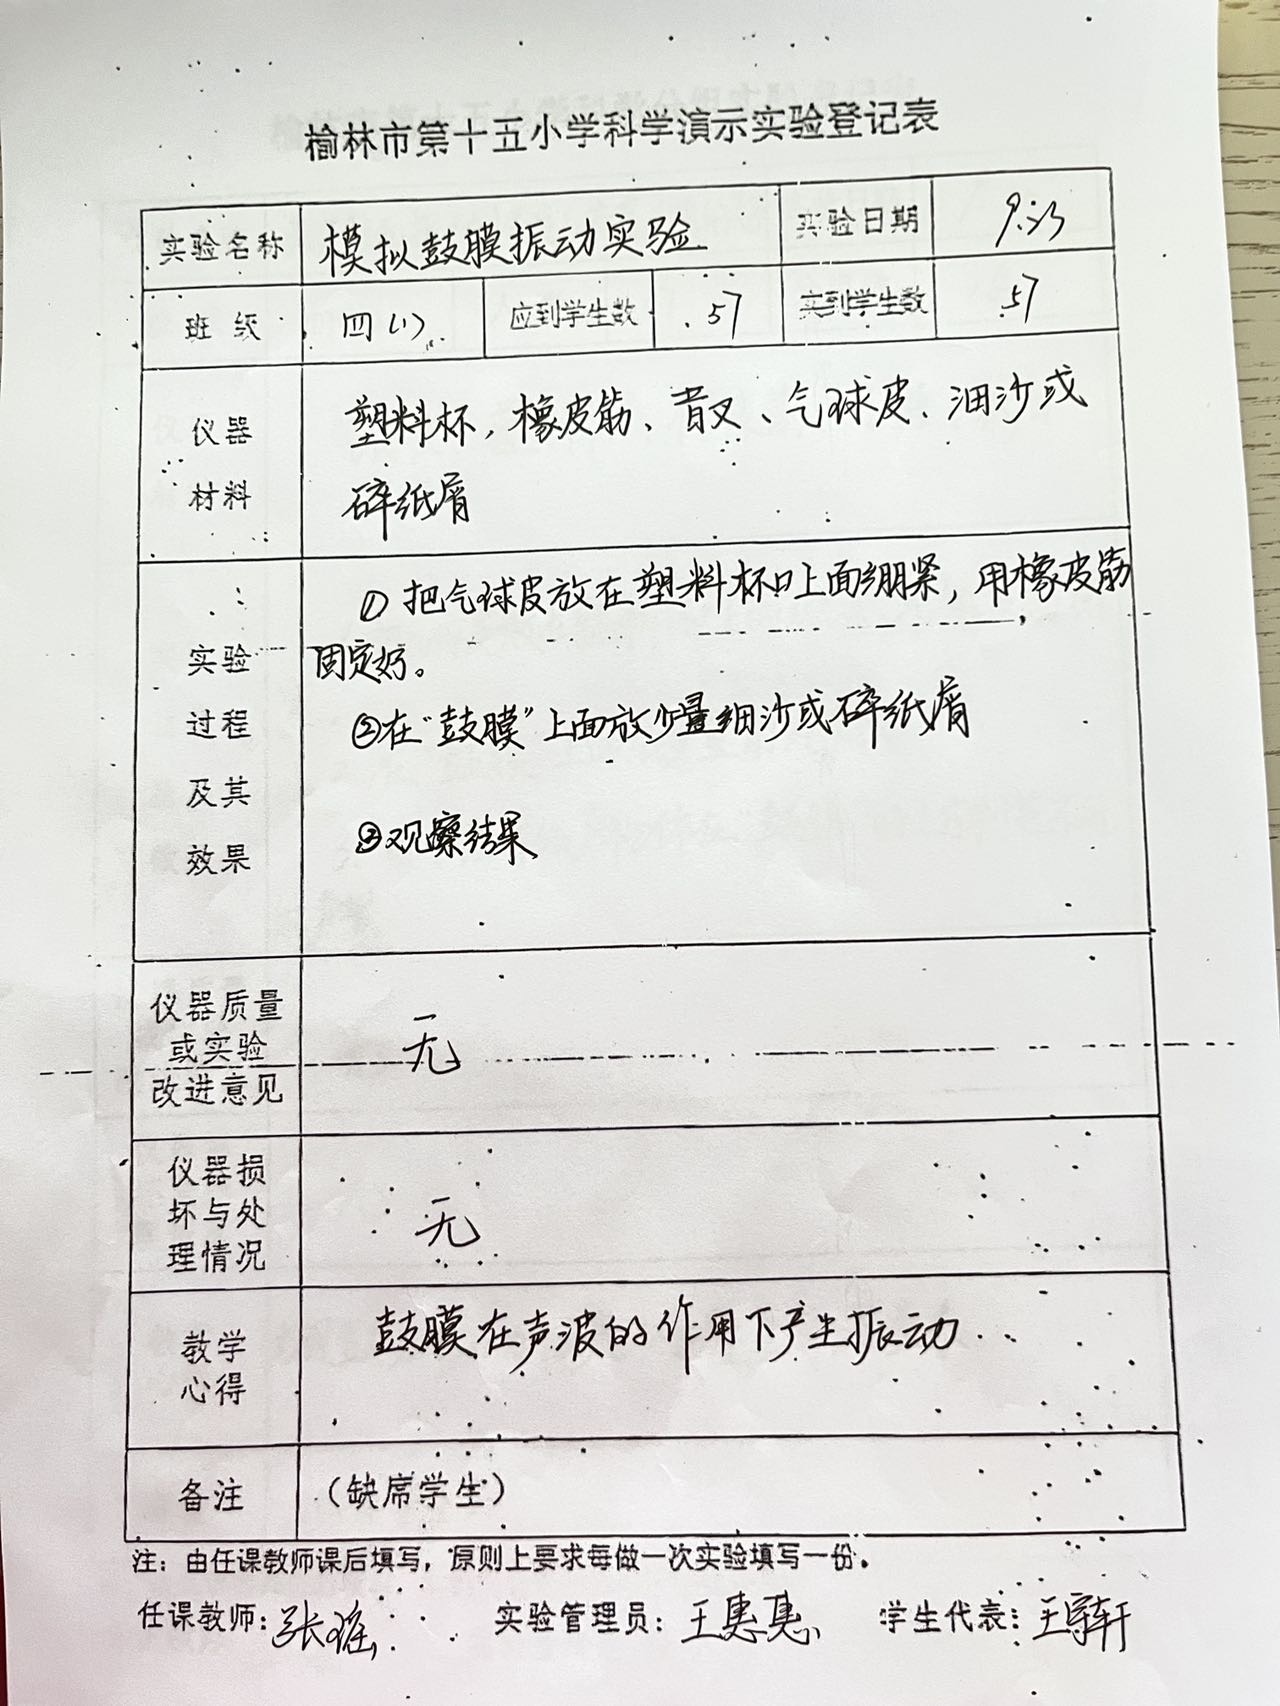 榆林市第十五小学科学演示实验登记表
实验名称 模拟鼓膜振动实验 实验日期 9.23
班级 四(1) 应到学生数 57 实到学生数 57
仪器材料 塑料杯，橡皮筋、音叉、气球皮、细沙或
碎纸屑
实验过程及其效果
①把气球皮放在塑料杯口上面绷紧，用橡皮筋
固定好。
②在“鼓膜”上面放少量细沙或碎纸屑
③观察结果
仪器质量
或实验
改进意见
无
仪器损
坏与处
理情况
无
教学
心得
鼓膜在声波的作用下产生振动
备注 （缺席学生）
注：由任课教师课后填写，原则上要求每做一次实验填写一份。
任课教师：张瑶 实验管理员：王惠惠 学生代表：王宇轩